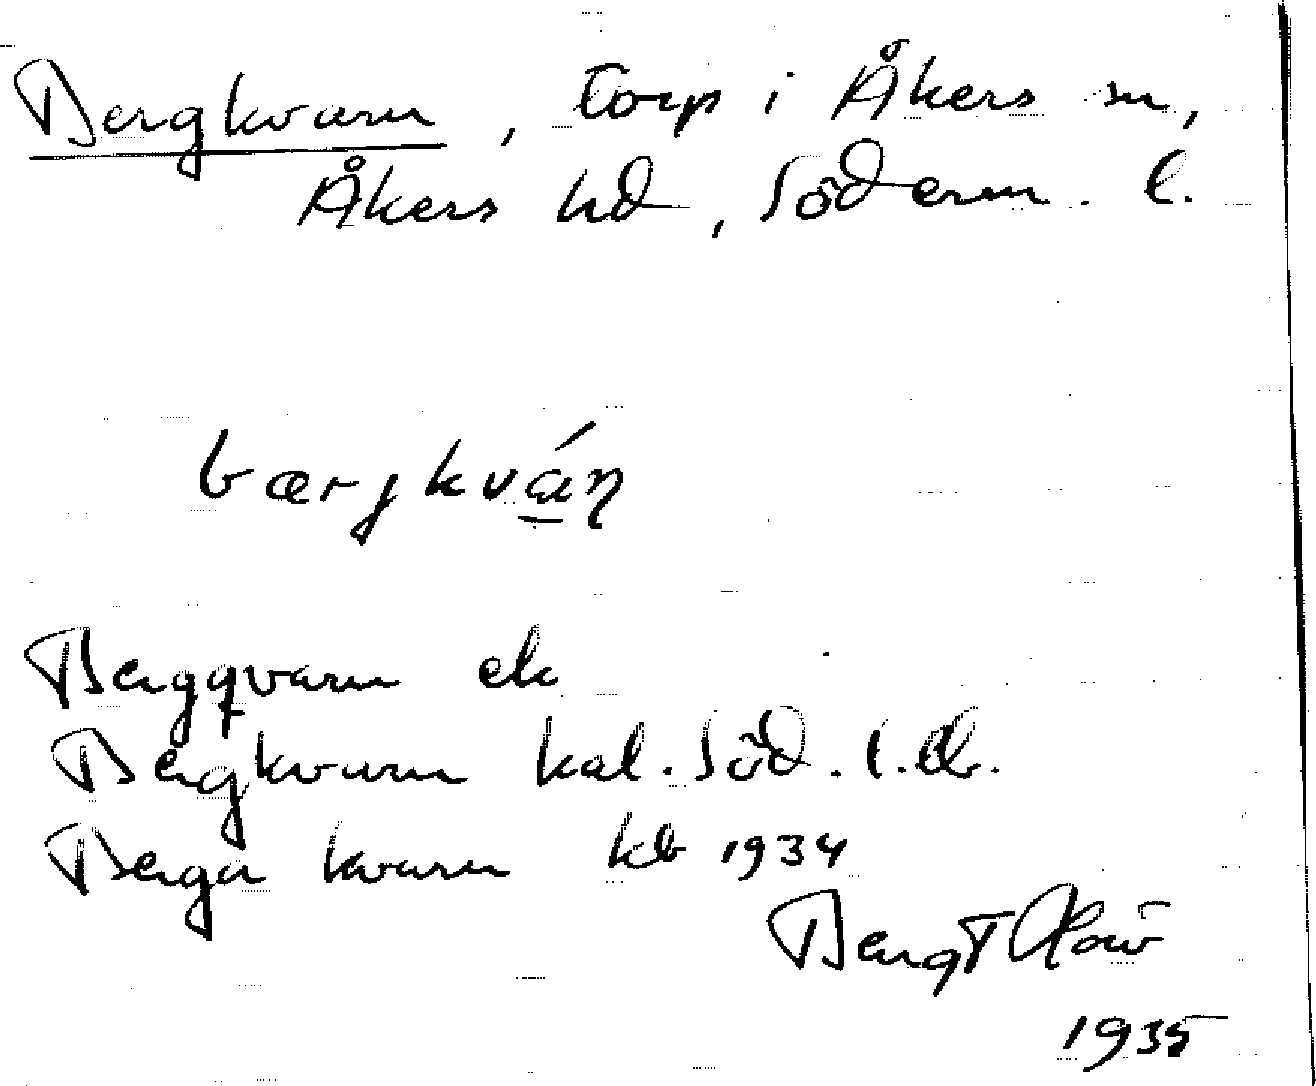 Bergkvarn, torp i Åkers sn,
Åkers hd, Söderm. l.
bærjkván
Bergqvarn ek
Bergkvarn kal. Söd. l.
Berga kvarn kb 1934
Bengt
1935